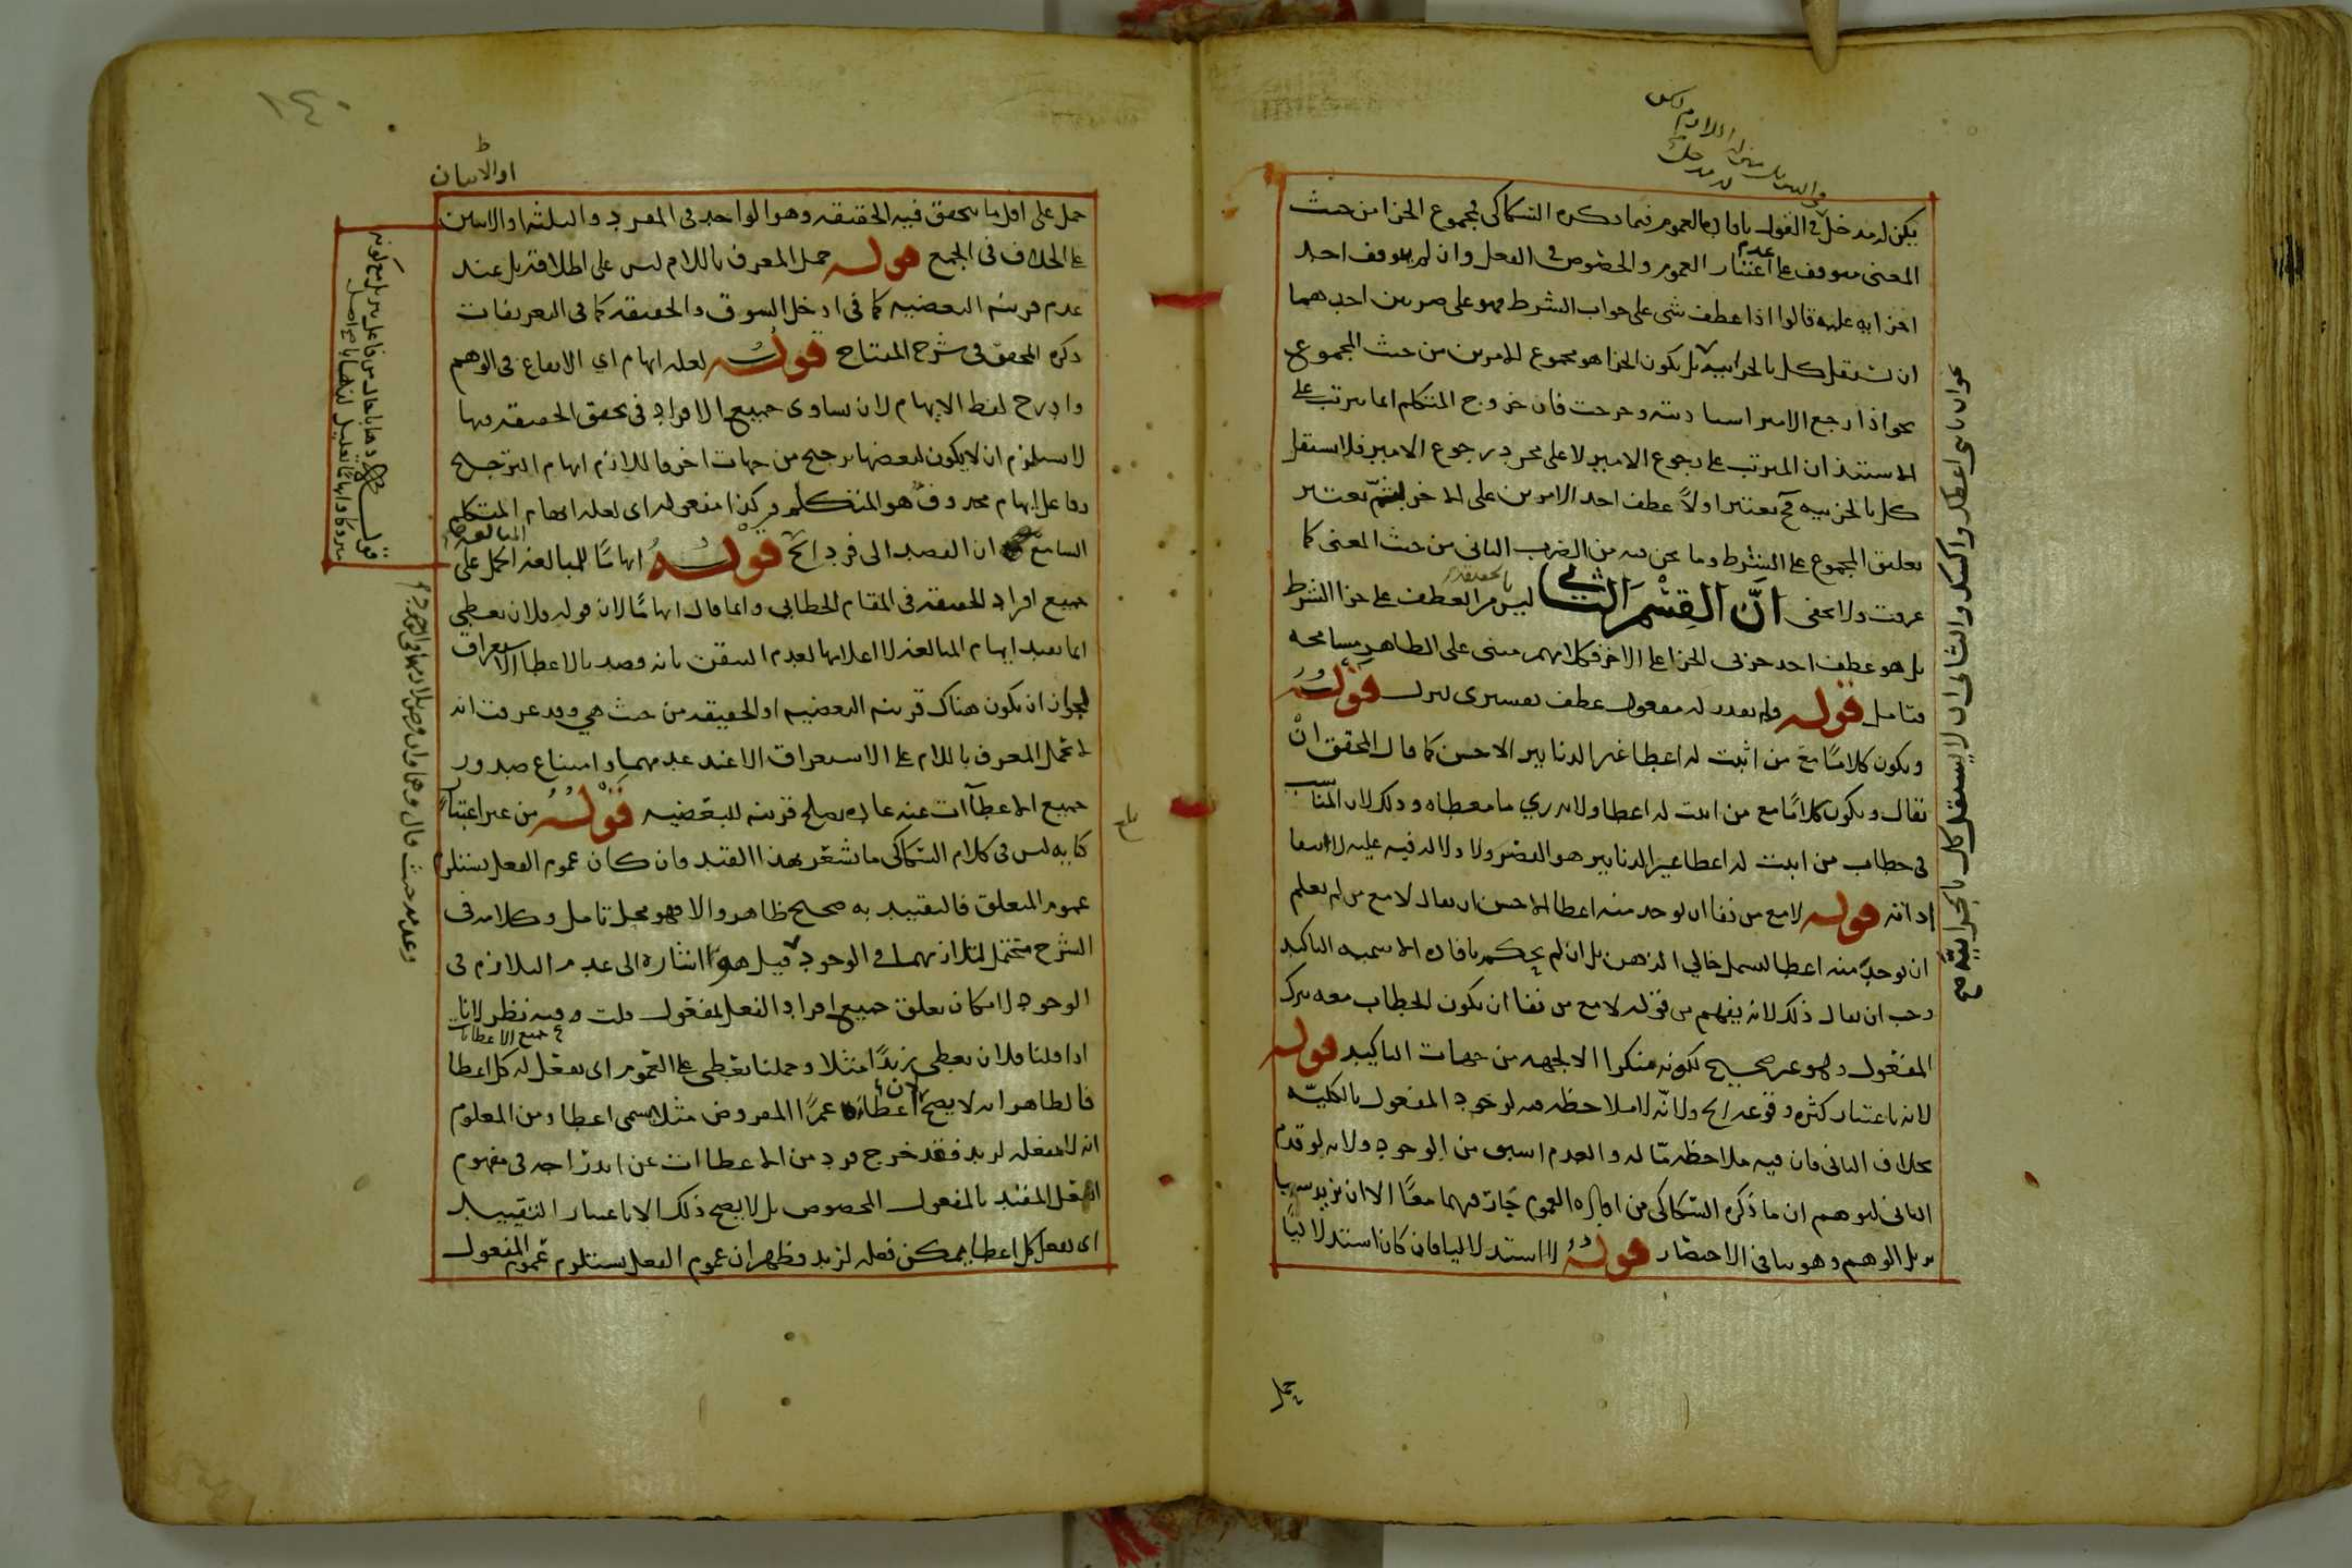 يكن له مدخل في القول بافادة العموم فيما ذكره السكاكي فمجموع الجزا من حيث
المعنى موقوف على عدم اعتبار العموم والخصوص في الفعل وان لم يتوقف احد
اجزايه عليه قالوا اذا عطف شي على جواب الشرط فهو على ضربين احدهما
ان يستقل كل بالجزاييه بل يكون الجزا هو مجموع الامرين من حيث المجموع
نحو اذا رجع الامير استاذنته وخرجت فان خروج المتكلم انما يترتب على
الاستيذان المترتب على رجوع الامير لا على مجرد رجوع الامير فلا استقل
كل بالجزييه فح يعتبر اولا عطف احد الامرين على الاخر ثم يعتبر
تعليق المجموع على الشرط وما نحن فيه من الضرب الثاني من حيث المعنى كما
عرفت ولا يخفى ان القسم الثاني ليس من العطف على جزا الشرط
بالحقيقة
بل هو عطف احد جزئي الجزا على الاخر فكلامهم مبنى على الظاهر مسامحه
فتامل قوله ولم يقدر له مفعول عطف تفسيرى لنزل قوله
ويكون كلاما مع من اثبت له اعطا غير الدنانير الاحسن كما قال المحقق ان
يقال ويكون كلاما مع من اثبت له اعطا ولا يدري ما معطاه وذلك لان المناسب
في خطاب من اثبت له اعطا غير الدنانير هو القصر ولا دلالة فيه عليه لانتفا
اداته قوله لا مع من نفا ان يوجد منه اعطا الاحسن ان يقال لا مع من لم يعلم
ان يوجد منه اعطا ليشمل خالي الذهن بل ان لم يحكم بافادة الاسميه التاكيد
وجب ان يقال ذلك لانه يفهم من قوله لا مع من نفا ان يكون الخطاب معه بترك
المفعول وهو غير صحيح لكونه منكرا الا بجهه من جهات التاكيد قوله
لانه باعتبار كثره وقوعه الخ ولانه لا ملاحظه فيه لوجود المفعول بالكليه
بخلاف الثاني فان فيه ملاحظة ما له والعدم اسبق من الوجود ولانه لو قدم
الثاني لتوهم ان ما ذكره السكاكي من افادة العموم جاز فيهما معا الا ان
يزيل الوهم وهو ينافي الاختصار قوله لا استدلاليا فان كان استدلاليا
عوان ياتي اعطك واكسك والثاني ان لا يستقل كل بالجزاييه صح
حمل
١٤٠
او الاثنان
حمل على اقل ما يتحقق فيه الحقيقه وهو الواحد في المفرد والثلثه او الاثنين
على الخلاف في الجمع قوله حمل المعرف باللام ليس على اطلاقه بل عند
عدم قرينه البعضيه كما في ادخل السوق والحقيقه كما في التعريفات
ذكره المحقق في شرح المفتاح قوله لعله ايهام اي الايقاع في الوهم
وادرج لفظ الايهام لان تساوى جميع الافراد في تحقق الحقيقه فيها
لا يستلزم ان لا يكون لبعضها ترجيح من جهات اخر فاللازم ايهام الترجيح
وفاعل ايهام محذوف هو المتكلم وكذا مفعوله اى لعله ايهام المتكلم
السامع ان القصد الى فرد الخ قوله ايهاما للمبالغه الحمل على
المبالغة
جميع افراد الحقيقه في المقام الخطابي وانما قال ايهاما لان قوله فلان يعطي
انما يفيد ايهام المبالغه لا اعلامها لعدم التيقن بانه قصد بالاعطا الاستغراق
لجواز ان يكون هناك قرينه البعضيه او الحقيقه من حيث هي وقد عرفت انه
لا يحمل المعرف باللام على الاستغراق الا عند عدمهما وامتناع صدور
جميع الاعطاآت عنه عادة يصلح قرينه للبعضيه قوله من غير اعتبار
كنايه ليس في كلام السكاكي ما يشعر بهذا القيد فان كان عموم الفعل يستلزم
عموم المتعلق فالتقييد به صحيح ظاهر والا فهو محل تامل وكلامه في
الشرح محتمل لتلازمهما في الوجود قيل هو اشاره الى عدم التلازم في
الوجود لامكان تعلق جميع افراد الفعل بمفعول قلت وفيه نظر لانا
جميع الاعطاآت
اذا قلنا فلان يعطي زيدا مثلا وحملنا يعطي على العموم اى يفعل له كل اعطا
فالظاهر انه لا يصح لان اعطا عمرا المفروض مثلا يسمى اعطا ومن المعلوم
انه لا يفعله لزيد فقد خرج فرد من الاعطاات عن اندراجه في مفهوم
الفعل المقيد بالمفعول المخصوص بل لا يصح ذلك الا باعتبار التقييد
اى يفعل كل اعطا يمكن فعله لزيد فظهر ان عموم الفعل يستلزم عموم المفعول